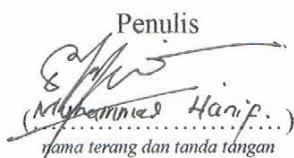 Penulis
(Muhammad Hanif.)
nama terang dan tanda tangan